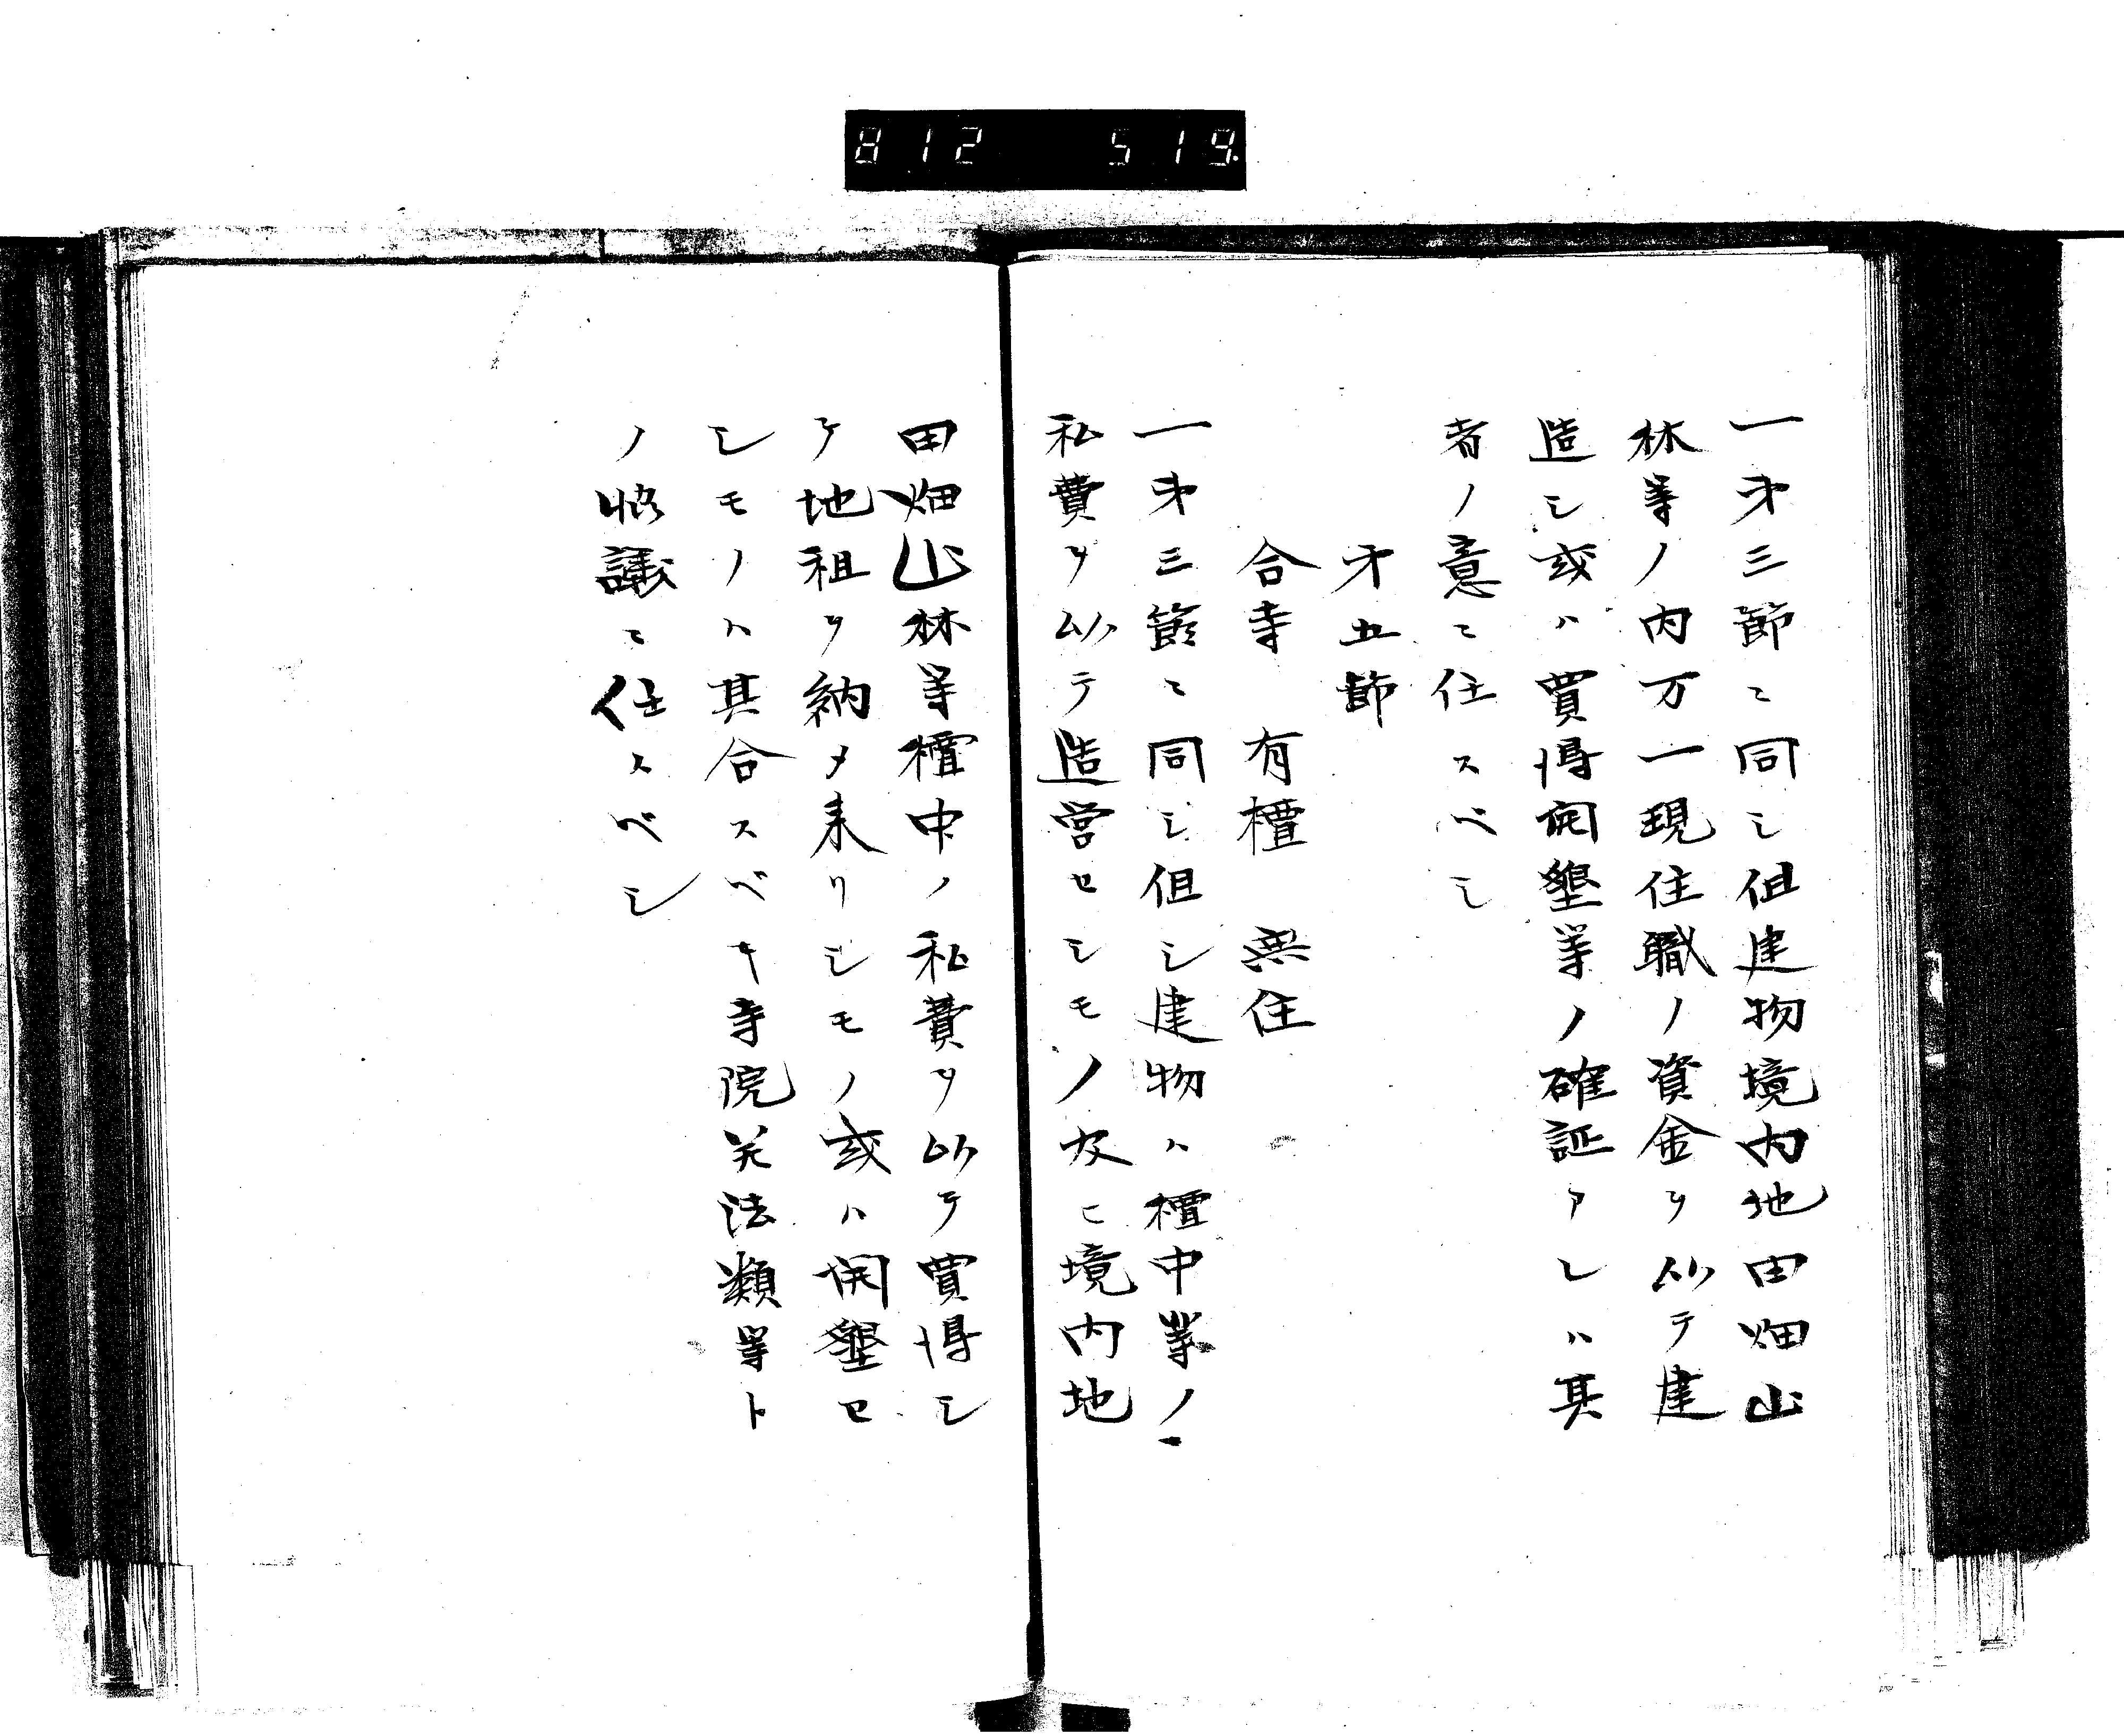 812 519.
一才三節ニ同シ但建物境内地田畑山
林等ノ内万一現住職ノ資金ヲ以テ建
造シ或ハ買得開墾等ノ確証アレハ其
者ノ意ニ任スベシ
才五節
合寺 有檀 無住
一才三節ニ同シ但シ建物ハ檀中等ノ
私費ヲ以テ造営セシモノ及ヒ境内地
田畑山林等檀中ノ私費ヲ以テ買得シ
テ地租ヲ納メ来リシモノ或ハ開墾セ
シモノハ其合スベキ寺院並法類等ト
ノ協議ニ任スベシ